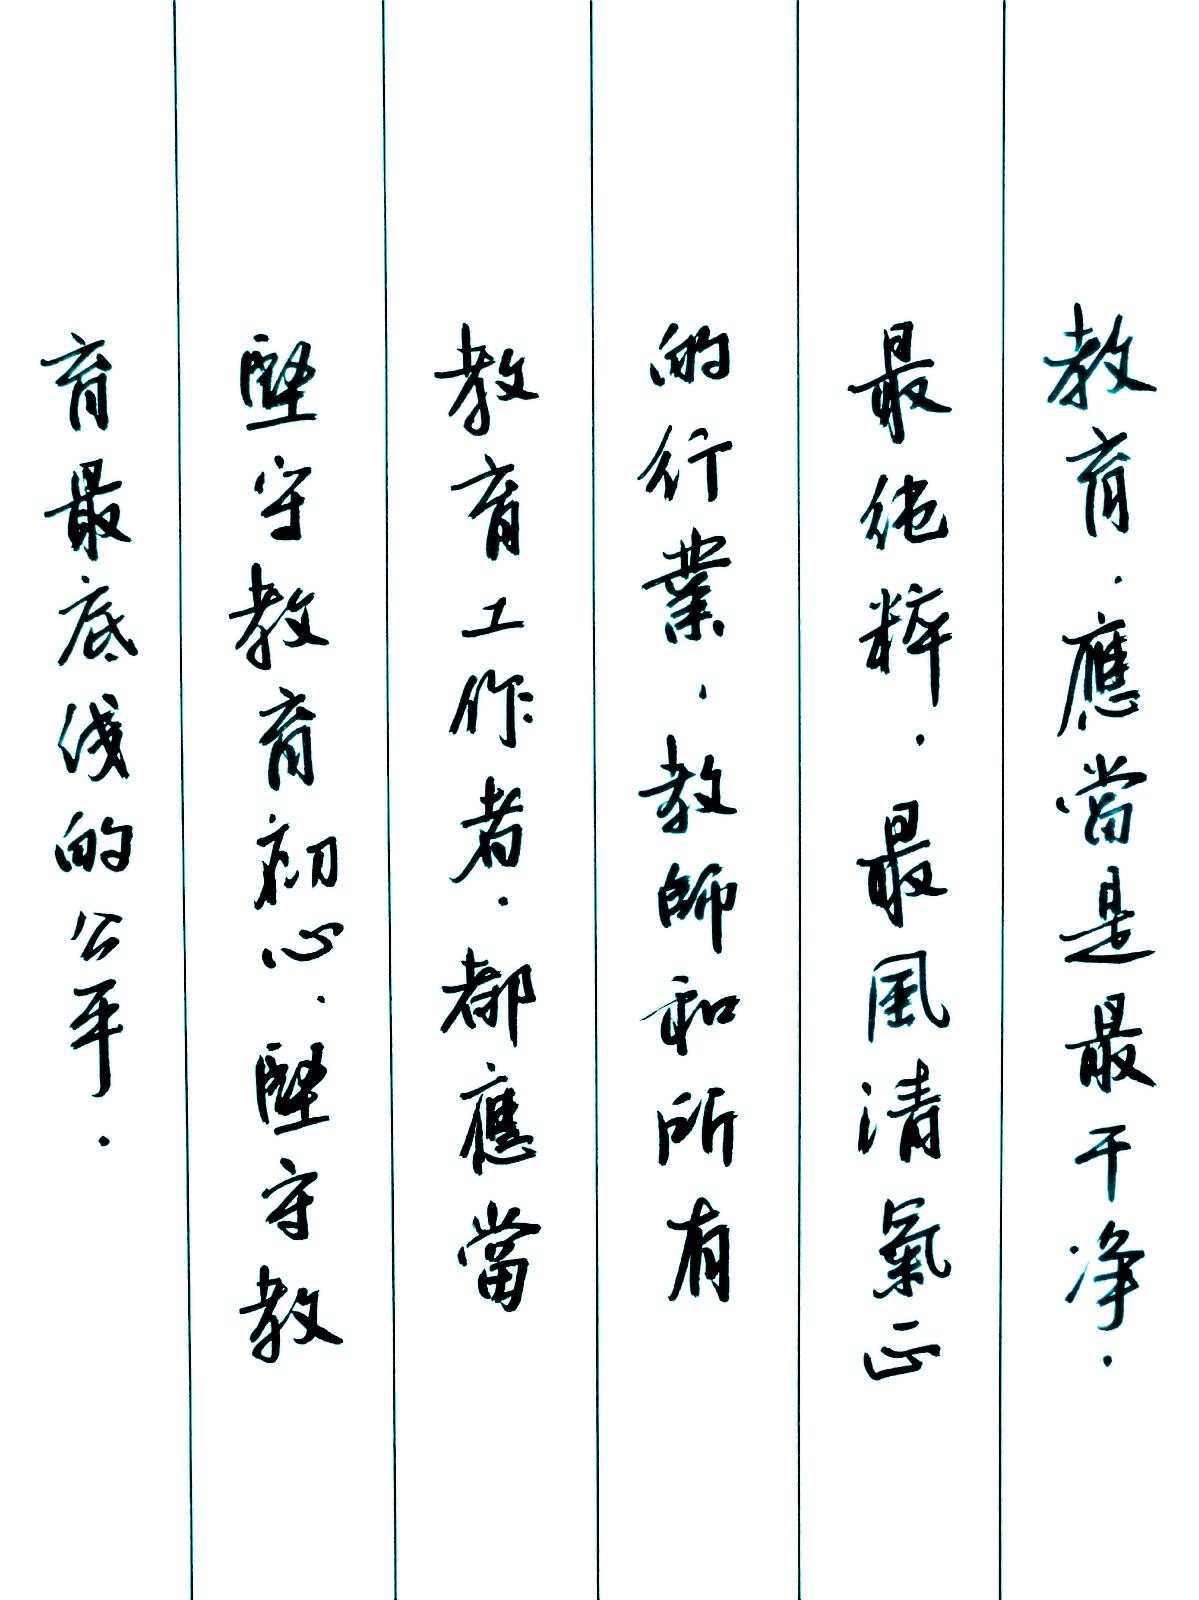 教育.應當是最干净.
最純粹.最風清氣正
的行業.教師和所有
教育工作者.都應當
堅守教育初心.堅守教
育最底线的公平.